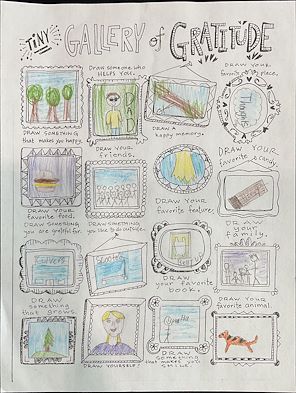 TINY GALLERY of GRATITUDE
DRAW SOMETHING
that makes you happy.
DRAW someone who
HELPS YOU.
DAD
DRAW A
happy memory.
DRAW YOUR
favorite place.
DRAW YOUR
favorite food.
DRAW YOUR
friends.
DRAW YOUR
favorite feature.
DRAW YOUR
favorite candy.
DRAW SOMETHING
you are grateful for.
Culvers
DRAW SOMETHING
you like to do outside.
DRAW
your favorite
book.
DRAW
your
FAMILY.
DRAW
something
that grows.
DRAW YOURSELF!
DRAW
something
that makes you
SMILE.
DRAW YOUR
favorite animal.